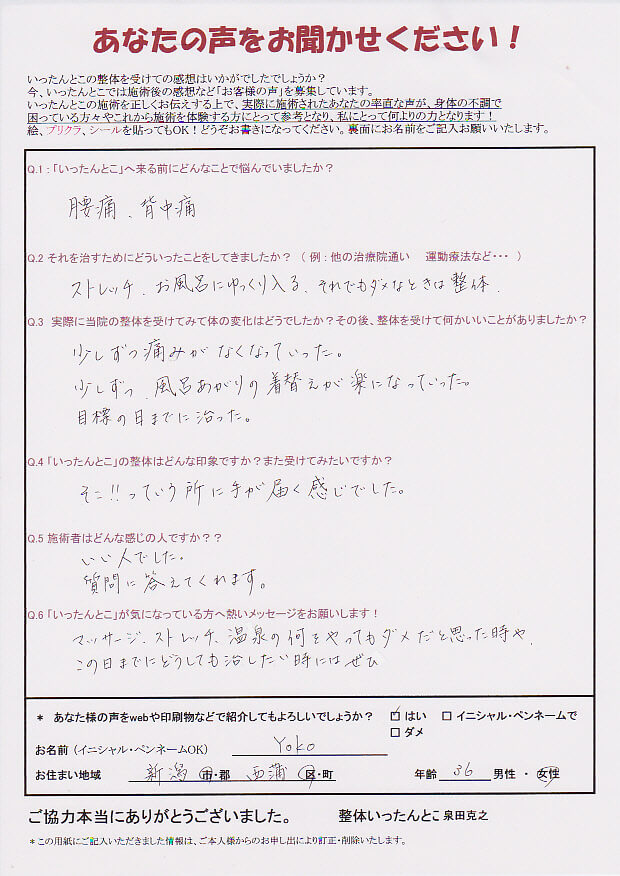 あなたの声をお聞かせください！
いったんとこの整体を受けての感想はいかがでしたでしょうか？
今、いったんとこでは施術後の感想など「お客様の声」を募集しています。
いったんとこの施術を正しくお伝えする上で、実際に施術されたあなたの率直な声が、身体の不調で
困っている方々やこれから施術を体験する方にとって参考となり、私にとって何よりの力となります！
絵、プリクラ、シールを貼ってもOK！どうぞお書きになってください。裏面にお名前をご記入お願いいたします。
Q.1：「いったんとこ」へ来る前にどんなことで悩んでいましたか？
腰痛、背中痛
Q.2 それを治すためにどういったことをしてきましたか？ （ 例：他の治療院通い　運動療法など・・・ ）
ストレッチ、お風呂にゆっくり入る、それでもダメなときは整体．
Q.3 実際に当院の整体を受けてみて体の変化はどうでしたか？その後、整体を受けて何かいいことがありましたか？
少しずつ痛みがなくなっていった。
少しずつ、風呂あがりの着替えが楽になっていった。
目標の日までに治った。
Q.4 「いったんとこ」の整体はどんな印象ですか？また受けてみたいですか？
そこ!!っていう所に手が届く感じでした。
Q.5 施術者はどんな感じの人ですか？？
いい人でした。
質問に答えてくれます。
Q.6 「いったんとこ」が気になっている方へ熱いメッセージをお願いします！
マッサージ、ストレッチ、温泉の何をやってもダメだと思った時や、
この日までにどうしても治したい時にはぜひ
＊ あなた様の声をwebや印刷物などで紹介してもよろしいでしょうか？ ☑ はい □ イニシャル・ペンネームで
□ ダメ
お名前（イニシャル・ペンネームOK） Yoko
お住まい地域 新潟 市・郡 西蒲 区・町 年齢 36 男性 ・ 女性
ご協力本当にありがとうございました。 整体いったんとこ 泉田克之
＊この用紙にご記入いただきました情報は、ご本人様からのお申し出により訂正・削除いたします。